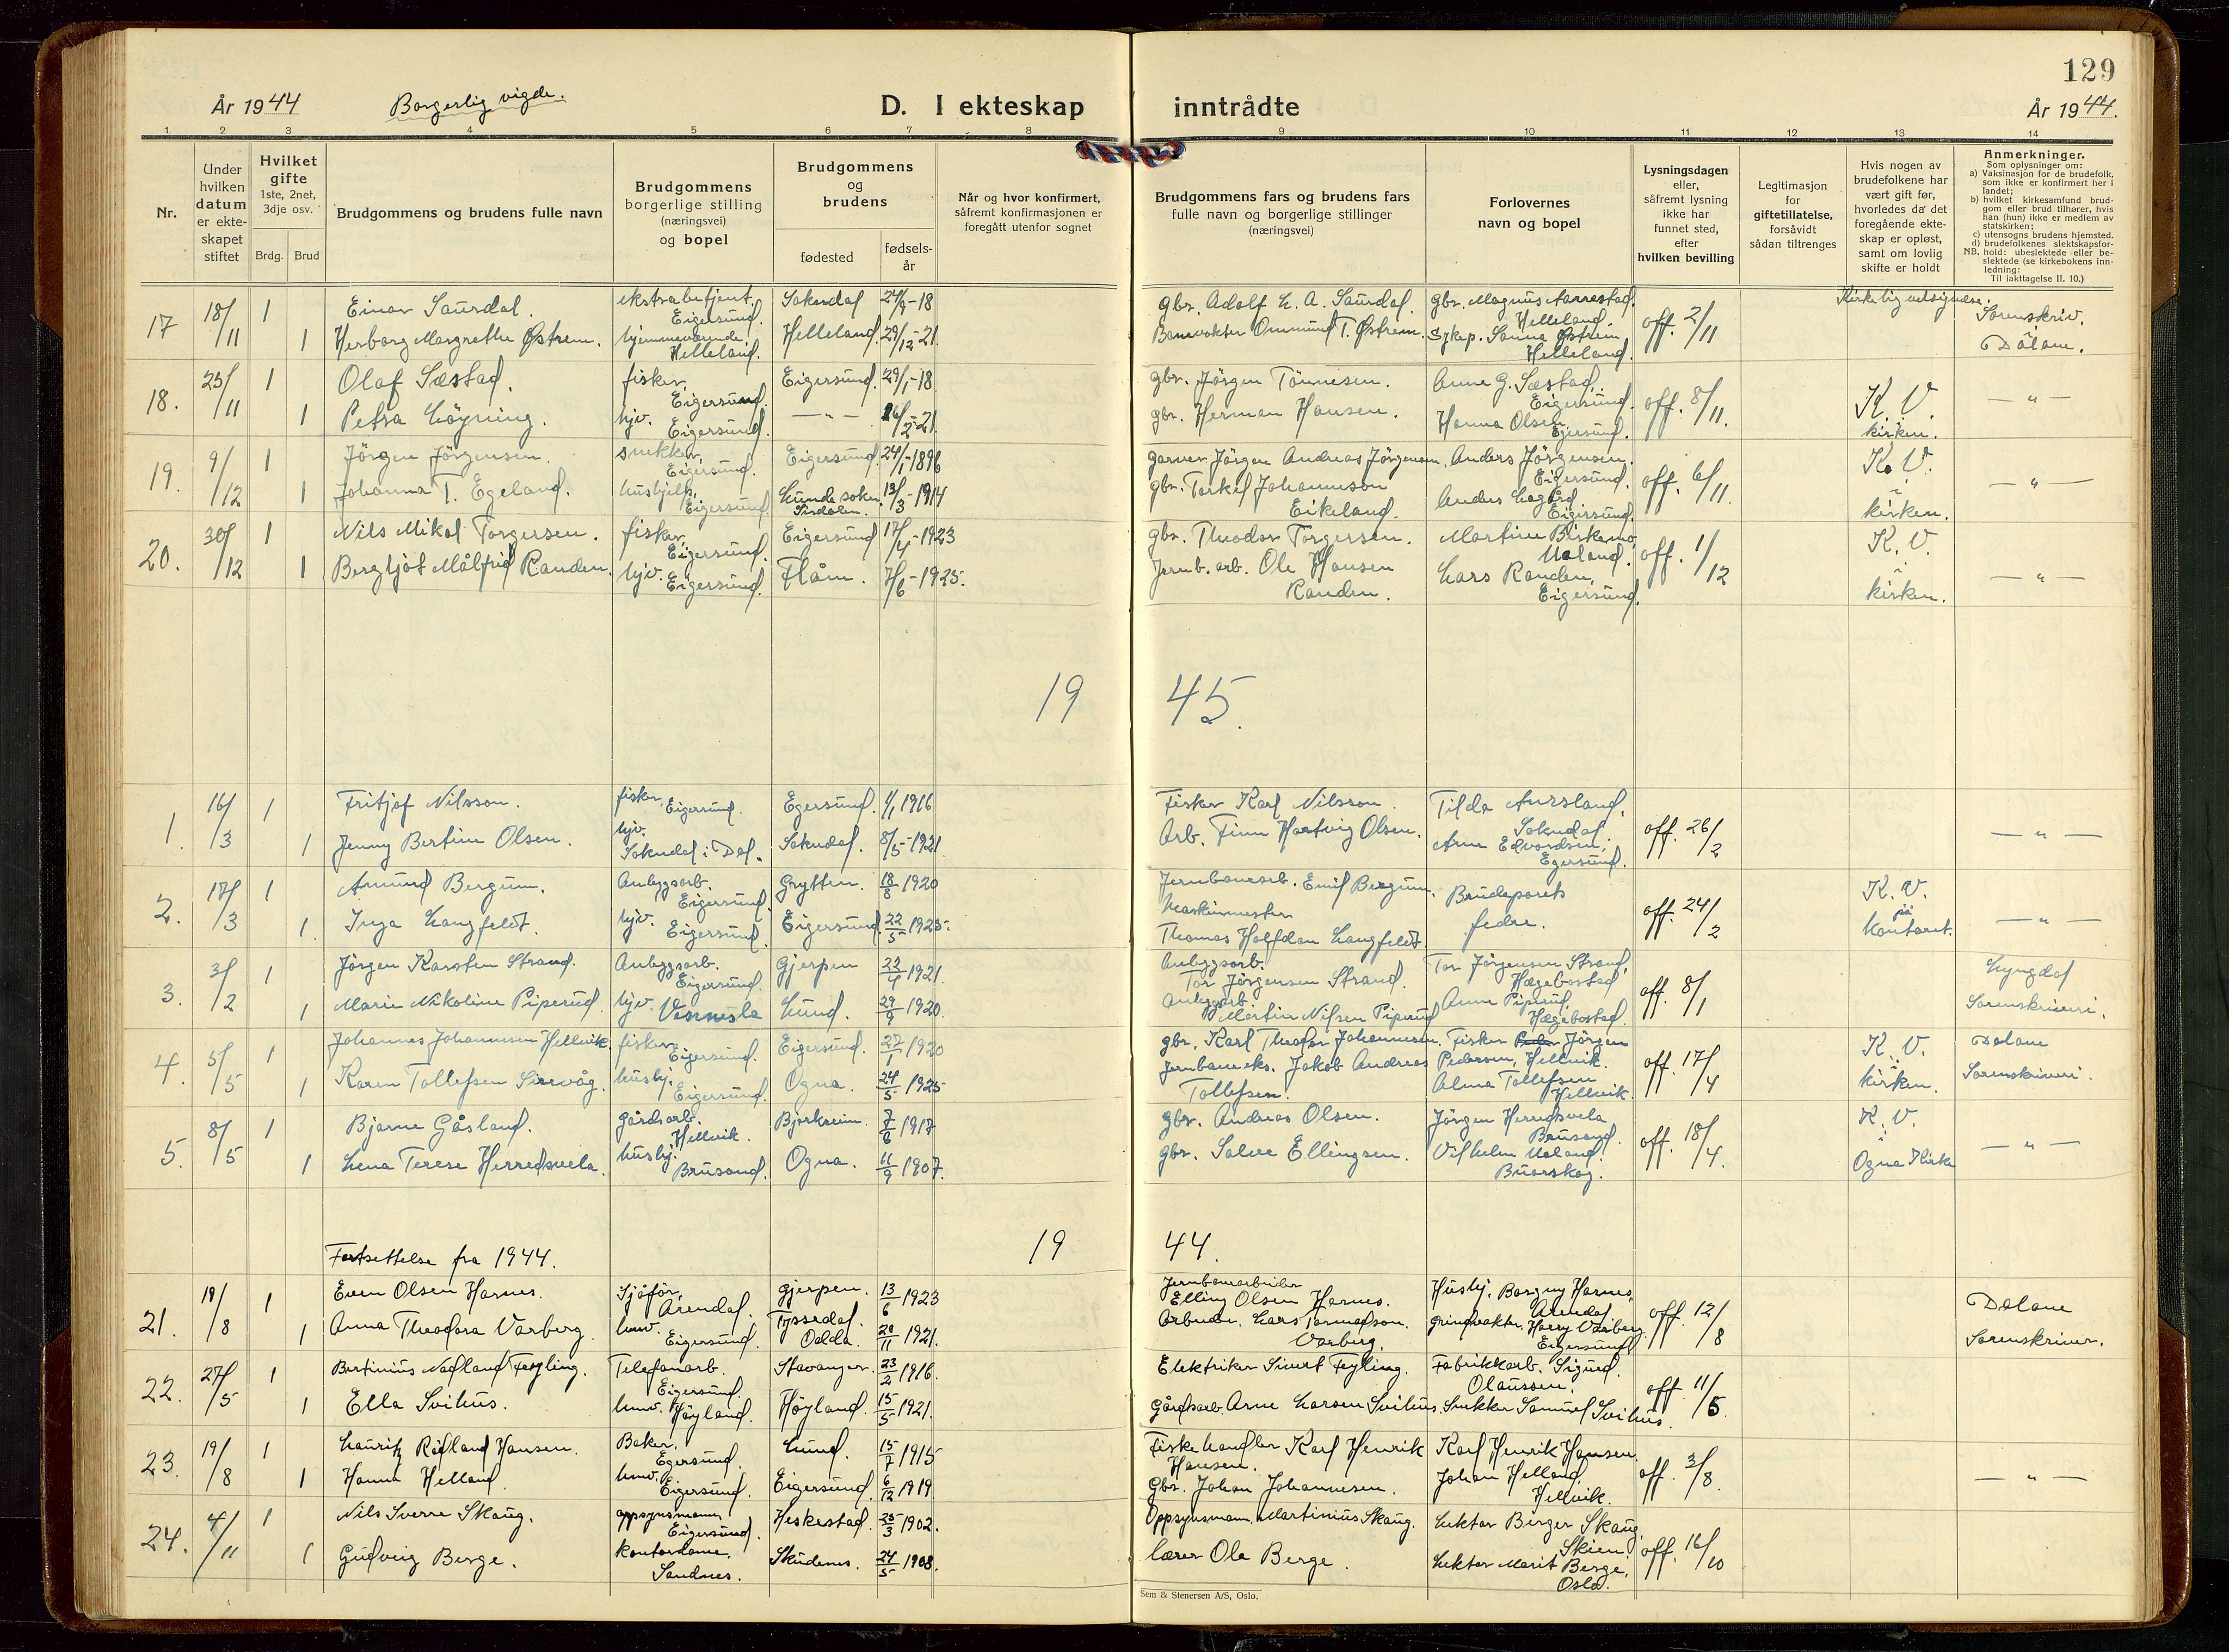 129
År 1944
Borgerlig vigde.
D. I ekteskap inntrådte
År 1944.
1 2 3 4 5 6 7 8 9 10 11 12 13 14
Nr.
Under hvilken datum er ekteskapet stiftet
Hvilket gifte
1ste, 2net, 3dje osv.
Brdg. Brud
Brudgommens og brudens fulle navn
Brudgommens borgerlige stilling (næringsvei) og bopel
Brudgommens og brudens
fødested
fødsels-år
Når og hvor konfirmert, såfremt konfirmasjonen er foregått utenfor sognet
Brudgommens fars og brudens fars fulle navn og borgerlige stillinger (næringsvei)
Forlovernes navn og bopel
Lysningsdagen eller, såfremt lysning ikke har funnet sted, efter hvilken bevilling
Legitimasjon for giftetillatelse, forsåvidt sådan tiltrenges
Hvis nogen av brudefolkene har vært gift før, hvorledes da det foregående ekteskap er opløst, samt om lovlig skifte er holdt
Anmerkninger.
Som oplysninger om:
a) Vaksinasjon for de brudefolk, som ikke er konfirmert her i landet;
b) hvilket kirkesamfund brudgom eller brud tilhører, hvis han (hun) ikke er medlem av statskirken;
c) utensogns brudens hjemsted.
d) brudefolkenes slektskapsforhold: ubeslektede eller beslektede (se kirkebokens innledning:
NB. Til iakttagelse II. 10.)
17 18/11 1 Einar Saurdal. ekstrabetjent, Eigersund. Sokndal 24/9-18 gbr. Adolf L. A. Saurdal. gbr. Magnus Aarrestad, Helleland. off. 2/11 Kirkelig velsignelse. Sorenskriv. Dalane.
1 Herborg Margrethe Østrem. hjemmeværende, Helleland. Helleland. 29/12-21. Banevokter Ommund T. Østrem. Sykep. Sanna Østrem Helleland.
18. 25/11 1 Olaf Sæstad. fisker, Eigersund. Eigersund. 29/1-18 gbr. Jörgen Tönnesen. Anne G. Sæstad, Eigersund. off. 8/11. K. V. i kirken. — " —
1 Petra Löyning. hjv. Eigersund. — " — 26/2-21. gbr. Herman Hansen. Hanna Olsen, Egersund.
19. 9/12 1 Jörgen Jörgensen. snekker, Eigersund. Eigersund. 24/1-1896 garver Jörgen Andreas Jörgensen. Anders Jörgensen, Eigersund. off. 6/11. K. V. i kirken. — " —
1 Johanna T. Egeland. hushjelp, Eigersund. Lunde sokn, Sirdalen. 13/3-1914 gbr. Torkel Johanneson Eikeland. Anders Lagård Eigersund.
20. 30/12 1 Nils Mikal Torgersen. fisker, Eigersund. Eigersund 17/4-1923 gbr. Theodor Torgersen. Martine Birkemo, Ualand. off. 1/12 K. V. i kirken. — " —
1 Bergljot Målfrid Randen. hjv. Eigersund. Flåm. 7/6-1925. Jernb. arb. Ole Hansen Randen. Lars Randen, Eigersund.
19 45.
1. 16/3 1 Fritjof Nilsson. fisker, Eigersund. Egersund. 1/1 1916 Fisker Karl Nilsson. Tilda Aursland, Sokndal. off. 26/2 — " —
1 Jenny Bertine Olsen. hjv. Sokndal i Dal. Sokndal. 8/5-1921. Arb. Finn Hartvig Olsen. Arne Edvardsen, Egersund.
2. 17/3 1 Amund Bergum. Anleggsarb. Eigersund. Grytten. 18/8 1920 Jernbanearb. Emil Bergum. Brudeparets fedre. off. 24/2 K. V. på kontoret. — " —
1. Inga Langfeldt. hjv. Eigersund. Eigersund. 22/5 1925. Maskinmester Thomas Halfdan Langfeldt.
3. 3/2 1 Jörgen Karsten Strand. Anleggsarb. Eigersund. Gjerpen 22/4 1921. Anleggsarb. Tor Jörgensen Strand. Tor Jörgensen Strand, Hægebostad off. 8/1 Lyngdal Sorenskriveri.
1 Marie Nikoline Piperud. hjv. Vennesla Lund. 29/9 1920. Anleggsarb. Martin Nilsen Piperud Anna Piperud, Hægebostad.
4. 5/5 1 Johannes Johannesen Hellvik. fisker, Eigersund. Eigersund. 27/1 1920 gbr. Karl Theodor Johannesen. Fisker Jörgen Pedersen, Hellvik. off. 17/4 K. V. i kirken. Dalane Sorenskriveri.
1 Karen Tollefsen Sirevåg. hushj. Eigersund. Ogna. 24/5 1925 Jernbaneeks. Jakob Andreas Tollefsen. Alma Tollefsen Hellvik.
5. 8/5 1 Bjarne Gåsland. gårdsarb. Hellvik. Bjerkreim. 7/6 1917 gbr. Andreas Olsen. Jörgen Herredsvela Brusand. off. 18/4. K. V. i Ogna Kirke — " —
1 Lena Terese Herredsvela. hushj. Brusand. Ogna. 11/9 1907. gbr. Salve Ellingsen. Vilhelm Ualand. Buarskog.
Fortsettelse fra 1944. 19 44.
21. 19/8 1 Even Olsen Harnes. Sjåför, Arendal. Gjerpen. 13/6 1923 Jernbanearbeider Elling Olsen Harnes. Hushj. Borgny Harnes, Arendal off. 12/8 Dalane Sorenskriver.
1 Anna Theodora Varberg. hmv. Eigersund. Tyssedal. Odda. 28/11 1921. Arbeider. Lars Tormodson. Varberg. grindvokter. Harry Varberg. Eigersund
22. 27/5 1 Bertinius Nedland Feyling. Telefonarb. Eigersund. Stavanger. 23/2 1916. Elektriker Sivert Feyling. Fabrikkarb. Sigurd Olaussen. off 11/5.
1 Ella Svihus. hmv. Höyland. Höyland. 15/5 1921. Gårdsarb. Arne Larsen Svihus. Snekker Samuel Svihus.
23. 19/8 1 Lauritz Rödland Hansen. Baker, Egersund. Lund. 15/7 1915 Fiskehandler Karl Henrik Hansen. Karl Henrik Hansen. off. 3/8. — " —
1 Hanna Helland. hmv. Eigersund. Eigersund. 6/12 1919 Gbr. Johan Johannesen. Johan Helland, Hellvik.
24. 4/11 1 Nils Sverre Skaug. oppsynsmann Eigersund. Heskestad. 25/3 1902. Oppsynsmann. Martinius Skaug. Lektor Birger Skaug, Skien. off. 16/10
1 Gudveig Berge. kontordame. Sandnes. Skudenes. 24/5 1908. lærer Ole Berge. Lektor Marit Berge, Oslo.
Sem & Stenersen A/S, Oslo.